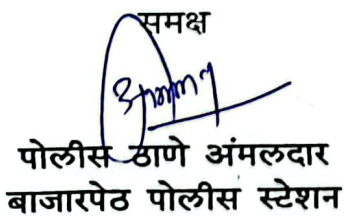 समक्ष
पोलीस ठाणे अंमलदार
बाजारपेठ पोलीस स्टेशन